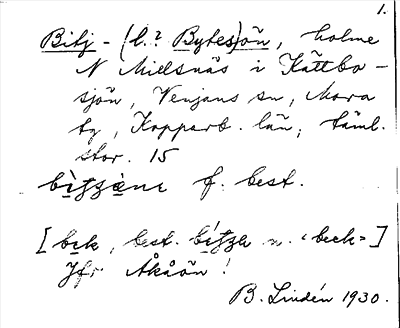 1.
Bitj - (l.? Bytes)ön, holme
N Mielsnäs i Kättbo-
sjön, Venjans sn, Mora
tg, Kopparb. län; täml.
stor. 15
f. best.
[bek, best. n. "beck"]
Jfr Åkåön!
B. Lindén 1930.